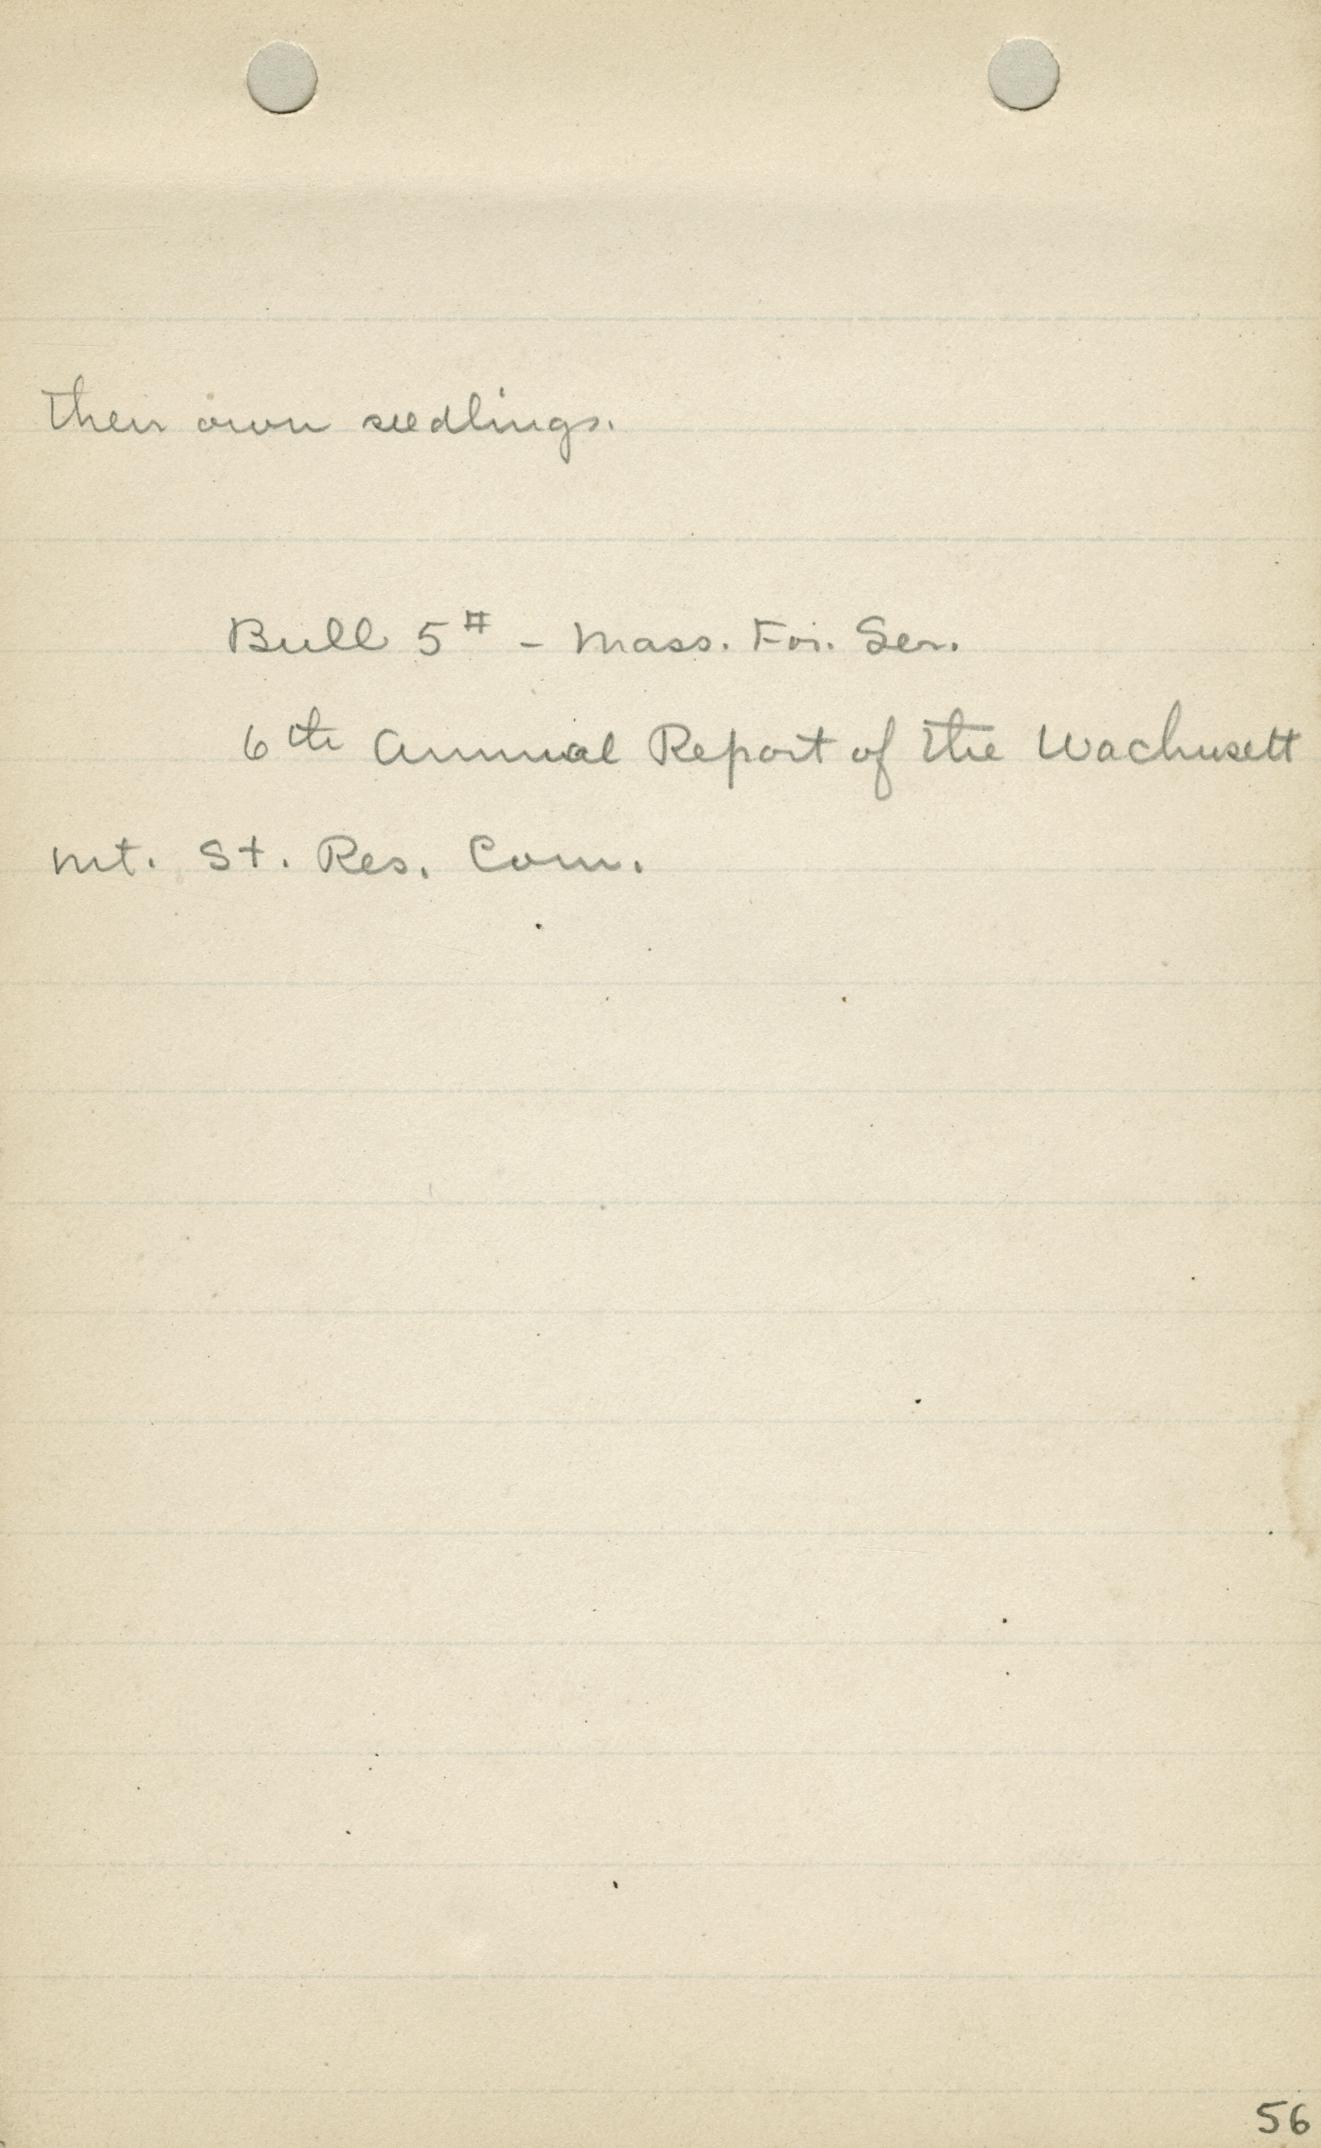 their own seedlings.
Bull 5# - Mass. For. Ser.
6th Annual Report of the Wachusett
Mt. St. Res. Com.
56